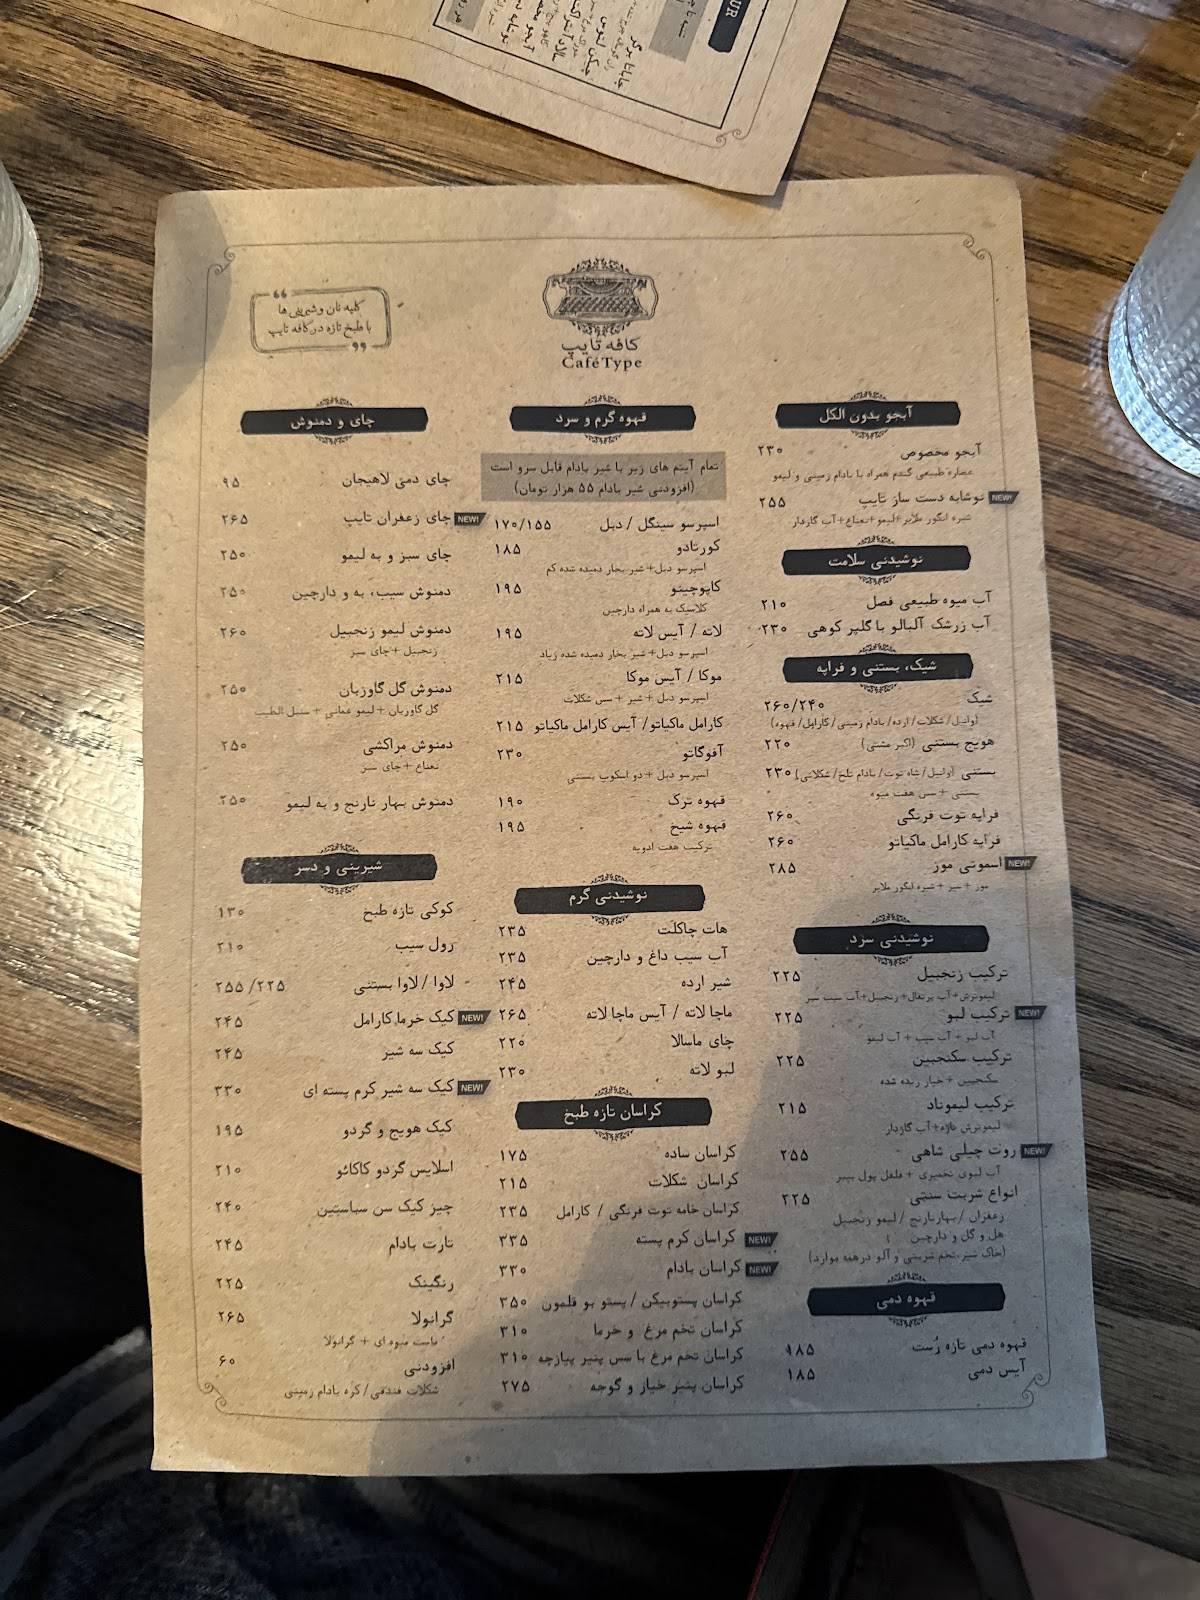 کافه تایپ
Café Type
کلیه نان و شیرینی ها
با طبخ تازه در کافه تایپ
آبجو بدون الکل
آبجو مخصوص ۲۳۰
عصاره طبیعی گندم همراه با بادام زمینی و لیمو
NEW! نوشابه دست ساز تایپ ۲۵۵
شیره انگور ملایر+لیمو+نعناع+آب گازدار
نوشیدنی سلامت
آب میوه طبیعی فصل ۲۱۰
آب زرشک آلبالو با گلپر کوهی ۲۳۰
شیک، بستنی و فراپه
شیک ۲۶۰/۲۴۰
(وانیل/ شکلات/ ارده/ بادام زمینی/ کارامل/ قهوه)
هویج بستنی (اکبر مشتی) ۲۲۰
بستنی (وانیل/ شاه توت/ بادام تلخ/ شکلاتی) ۲۳۰
بستنی + سس هفت میوه
فراپه توت فرنگی ۲۶۰
فراپه کارامل ماکیاتو ۲۶۰
NEW! اسموتی موز ۲۸۵
موز + شیر + شیره انگور ملایر
نوشیدنی سرد
ترکیب زنجبیل ۲۲۵
لیموترش+آب پرتقال+زنجبیل+آب سیب سبز
NEW! ترکیب لبو ۲۲۵
آب لبو + آب سیب + آب لیمو
ترکیب سکنجبین ۲۲۵
سکنجبین + خیار رنده شده
ترکیب لیموناد ۲۱۵
لیموترش تازه+آب گازدار
NEW! روت چیلی شاهی ۲۵۵
آب لبوی تخمیری + فلفل پول بیبر
انواع شربت سنتی ۲۲۵
زعفران / بهارنارنج / لیمو زنجبیل
هل و گل و دارچین
(خاک شیر،تخم شربتی و آلو در همه موارد)
قهوه دمی
قهوه دمی تازه رُست ۱۸۵
آیس دمی ۱۸۵
قهوه گرم و سرد
تمام آیتم های زیر با شیر بادام قابل سرو است
(افزودنی شیر بادام ۵۵ هزار تومان)
اسپرسو سینگل / دبل ۱۷۰/۱۵۵
کورتادو ۱۸۵
اسپرسو دبل+شیر بخار دمیده شده کم
کاپوچینو ۱۹۵
کلاسیک به همراه دارچین
لاته / آیس لاته ۱۹۵
اسپرسو دبل+شیر بخار دمیده شده زیاد
موکا / آیس موکا ۲۱۵
اسپرسو دبل + شیر + سس شکلات
کارامل ماکیاتو/ آیس کارامل ماکیاتو ۲۱۵
آفوگاتو ۲۳۰
اسپرسو دبل + دو اسکوپ بستنی
قهوه ترک ۱۹۰
قهوه شیخ ۱۹۵
ترکیب هفت ادویه
نوشیدنی گرم
هات چاکلت ۲۳۵
آب سیب داغ و دارچین ۲۳۵
شیر ارده ۲۴۵
ماچا لاته / آیس ماچا لاته ۲۶۵
چای ماسالا ۲۲۰
لبو لاته ۲۳۰
کراسان تازه طبخ
کراسان ساده ۱۷۵
کراسان شکلات ۲۱۵
کراسان خامه توت فرنگی / کارامل ۲۳۵
NEW! کراسان کرم پسته ۳۳۵
NEW! کراسان بادام ۳۳۰
کراسان پستوبیکن / پستو بو قلمون ۳۵۰
کراسان تخم مرغ و خرما ۳۱۰
کراسان تخم مرغ با سس پنیر پیازچه ۳۱۰
کراسان پنیر خیار و گوجه ۲۷۵
چای و دمنوش
چای دمی لاهیجان ۹۵
NEW! چای زعفران تایپ ۲۶۵
چای سبز و به لیمو ۲۵۰
دمنوش سیب، به و دارچین ۲۵۰
دمنوش لیمو زنجبیل ۲۶۰
زنجبیل +چای سبز
دمنوش گل گاوزبان ۲۵۰
گل گاوزبان + لیمو عمانی + سنبل الطیب
دمنوش مراکشی ۲۵۰
نعناع +چای سبز
دمنوش بهار نارنج و به لیمو ۲۵۰
شیرینی و دسر
کوکی تازه طبخ ۱۳۰
رول سیب ۲۱۰
لاوا / لاوا بستنی ۲۵۵ /۲۲۵
NEW! کیک خرما کارامل ۲۴۵
کیک سه شیر ۲۴۵
NEW! کیک سه شیر کرم پسته ای ۳۳۰
کیک هویج و گردو ۱۹۵
اسلایس گردو کاکائو ۲۱۰
چیز کیک سن سباستین ۲۴۰
تارت بادام ۲۴۵
رنگینک ۲۲۵
گرانولا ۲۶۵
ماست میوه ای + گرانولا
افزودنی ۶۰
شکلات فندقی / کره بادام زمینی